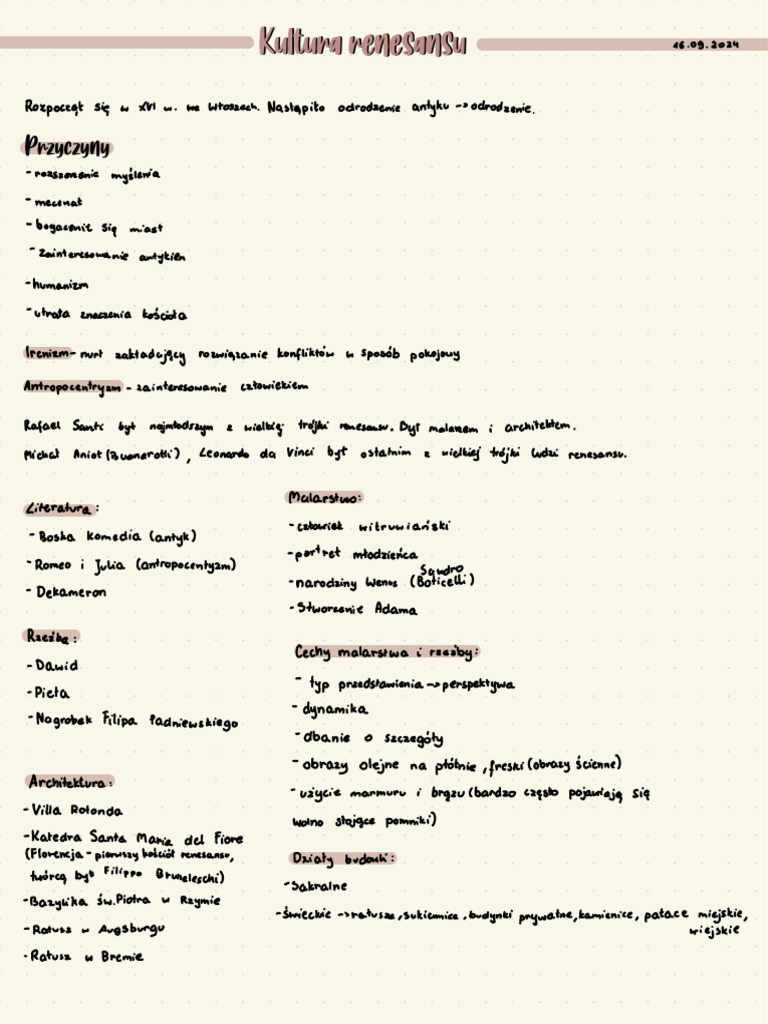 Kultura renesansu
16.09.2024
Rozpoczął się w XVI w. we Włoszech. Nastąpiło odrodzenie antyku -> odrodzenie.
Przyczyny
- rozszerzenie myślenia
- mecenat
- bogacenie się miast
- zainteresowanie antykiem
- humanizm
- utrata znaczenia kościoła
Irenizm - nurt zakładający rozwiązanie konfliktów w sposób pokojowy
Antropocentryzm - zainteresowanie człowiekiem
Rafael Santi był najmłodszym z wielkiej trójki renesansu. Był malarzem i architektem.
Michał Anioł (Buonarotti), Leonardo da Vinci był ostatnim z wielkiej trójki ludzi renesansu.
Literatura:
- Boska komedia (antyk)
- Romeo i Julia (antropocentyzm)
- Dekameron
Rzeźba:
- Dawid
- Pieta
- Nagrobek Filipa Padniewskiego
Architektura:
- Villa Rotonda
- Katedra Santa Maria del Fiore
(Florencja - pierwszy kościół renesansu,
twórcą był Filippo Bruneleschi)
- Bazylika św. Piotra w Rzymie
- Ratusz w Augsburgu
- Ratusz w Bremie
Malarstwo:
- człowiek witruwiański
- portret młodzieńca
Sandro
- narodziny Wenus (Boticelli)
- Stworzenie Adama
Cechy malarstwa i rzeźby:
- typ przedstawienia -> perspektywa
- dynamika
- dbanie o szczegóły
- obrazy olejne na płótnie, freski (obrazy ścienne)
- użycie marmuru i brązu (bardzo często pojawiają się
wolno stojące pomniki)
Działy budowli:
- Sakralne
- świeckie -> ratusze, sukiennice, budynki prywatne, kamienice, pałace miejskie,
wiejskie